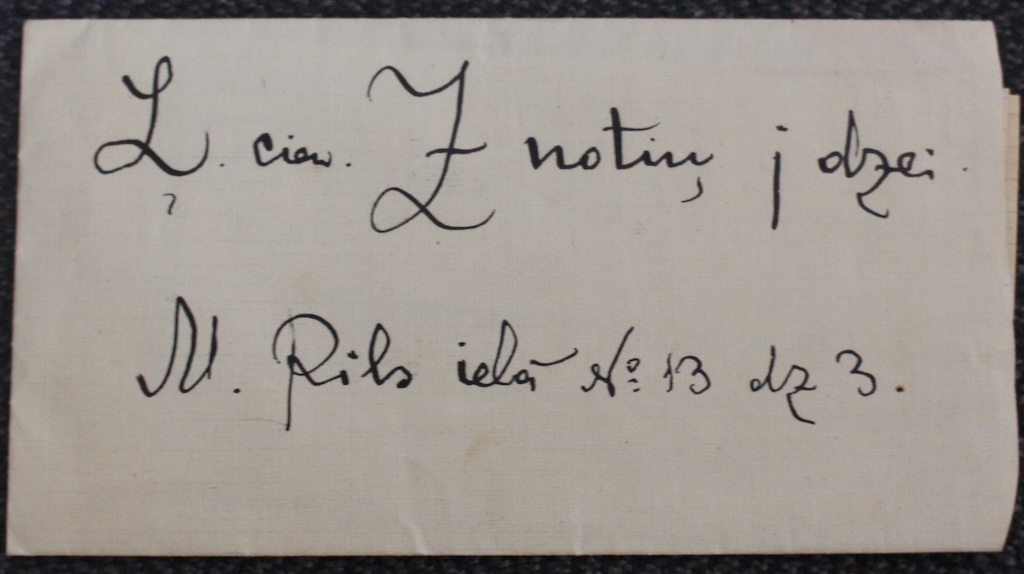 Ļ. cien. Z notiņ j dzei.
M. Pils ielā № 13 dz 3.